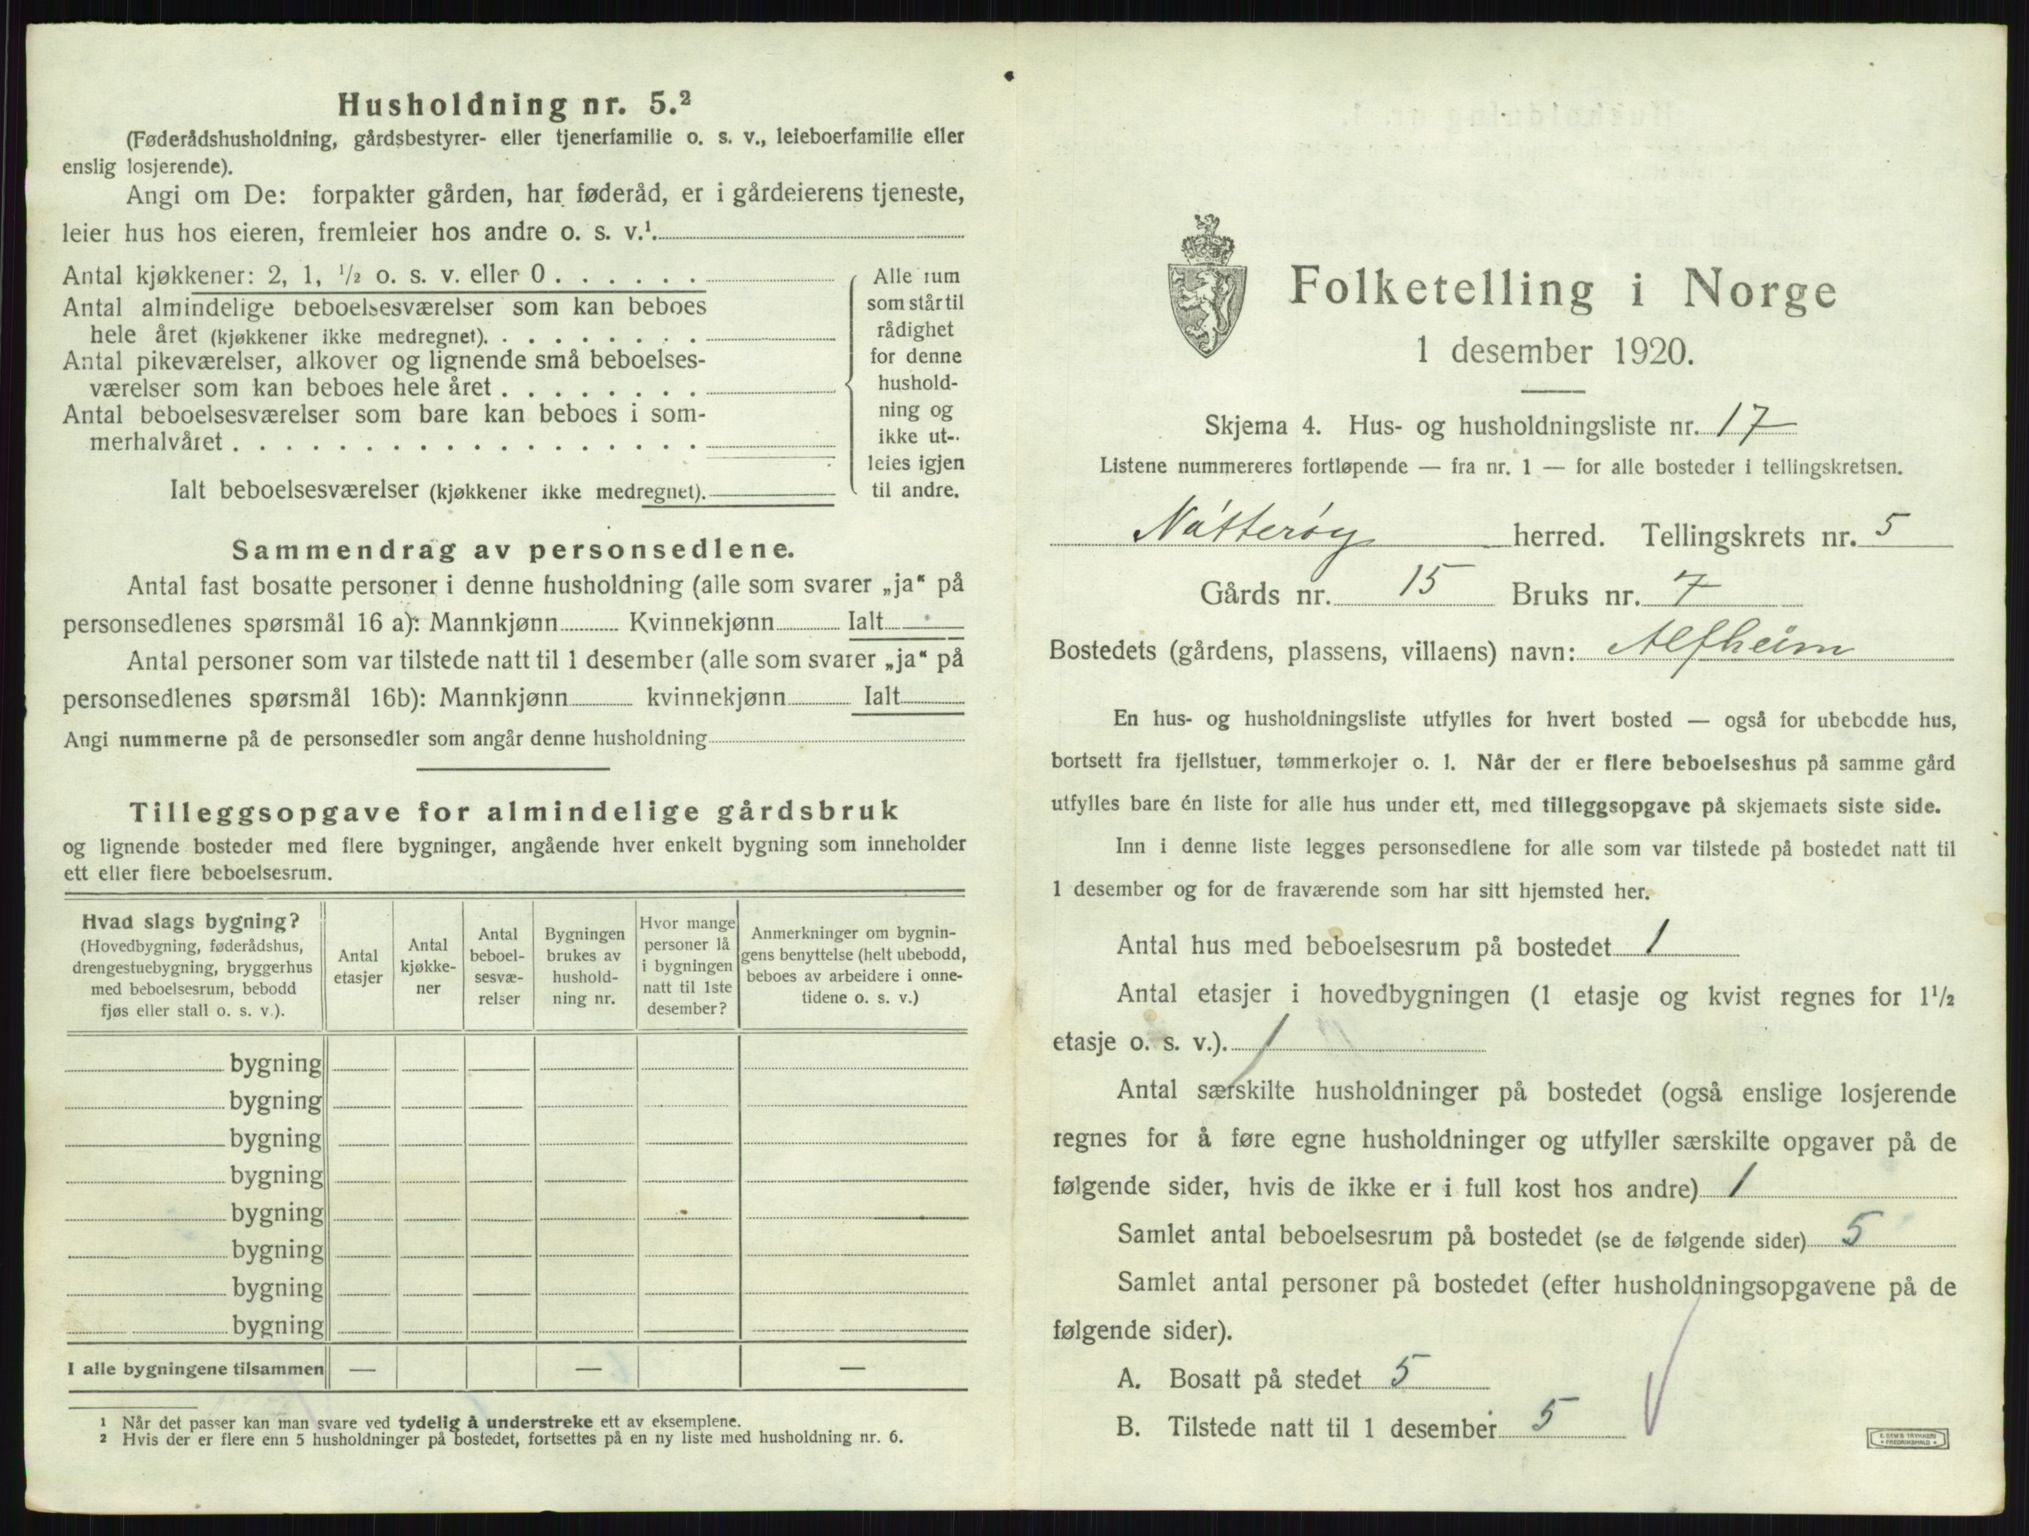 Husholdning nr. 5.²
(Føderådshusholdning, gårdsbestyrer- eller tjenerfamilie o. s. v., leieboerfamilie eller
enslig losjerende).
Angi om De: forpakter gården, har føderåd, er i gårdeierens tjeneste,
leier hus hos eieren, fremleier hos andre o. s. v.¹.
Antal kjøkkener: 2, 1, ½ o. s. v. eller 0 . . . . . .
Antal almindelige beboelsesværelser som kan beboes
hele året (kjøkkener ikke medregnet). . . . . . . . .
Antal pikeværelser, alkover og lignende små beboelses-
værelser som kan beboes hele året . . . . . . . .
Antal beboelsesværelser som bare kan beboes i som-
merhalvåret . . . . . . . . . . . . . . . . . .
Ialt beboelsesværelser (kjøkkener ikke medregnet).
Alle rum
som står til
rådighet
for denne
hushold-
ning og
ikke ut-
leies igjen
til andre.
Sammendrag av personsedlene.
Antal fast bosatte personer i denne husholdning (alle som svarer „ja“ på
personsedlenes spørsmål 16 a): Mannkjønn Kvinnekjønn Ialt
Antal personer som var tilstede natt til 1 desember (alle som svarer „ja“ på
personsedlenes spørsmål 16b): Mannkjønn kvinnekjønn Ialt
Angi nummerne på de personsedler som angår denne husholdning
Tilleggsopgave for almindelige gårdsbruk
og lignende bosteder med flere bygninger, angående hver enkelt bygning som inneholder
ett eller flere beboelsesrum.
Hvad slags bygning?
(Hovedbygning, føderådshus,
drengestuebygning, bryggerhus
med beboelsesrum, bebodd
fjøs eller stall o. s. v.).
Antal
etasjer
Antal
kjøkke-
ner
Antal
beboel-
sesvæ-
relser
Bygningen
brukes av
hushold-
ning nr.
Hvor mange
personer lå
i bygningen
natt til 1ste
desember?
Anmerkninger om bygnin-
gens benyttelse (helt ubebodd,
beboes av arbeidere i onne-
tidene o. s. v.)
bygning
bygning
bygning
bygning
bygning
bygning
bygning
bygning
I alle bygningene tilsammen — — —
¹ Når det passer kan man svare ved tydelig å understreke ett av eksemplene.
² Hvis der er flere enn 5 husholdninger på bostedet, fortsettes på en ny liste med husholdning nr. 6.
Folketelling i Norge
1 desember 1920.
Skjema 4. Hus- og husholdningsliste nr. 17
Listene nummereres fortløpende — fra nr. 1 — for alle bosteder i tellingskretsen.
Nøtterøy herred. Tellingskrets nr. 5
Gårds nr. 15 Bruks nr. 7
Bostedets (gårdens, plassens, villaens) navn: Alfheim
En hus- og husholdningsliste utfylles for hvert bosted — også for ubebodde hus,
bortsett fra fjellstuer, tømmerkojer o. l. Når der er flere beboelseshus på samme gård
utfylles bare én liste for alle hus under ett, med tilleggsopgave på skjemaets siste side.
Inn i denne liste legges personsedlene for alle som var tilstede på bostedet natt til
1 desember og for de fraværende som har sitt hjemsted her.
Antal hus med beboelsesrum på bostedet 1
Antal etasjer i hovedbygningen (1 etasje og kvist regnes for 1½
etasje o. s. v.). 1
Antal særskilte husholdninger på bostedet (også enslige losjerende
regnes for å føre egne husholdninger og utfyller særskilte opgaver på de
følgende sider, hvis de ikke er i full kost hos andre) 1
Samlet antal beboelsesrum på bostedet (se de følgende sider) 5
Samlet antal personer på bostedet (efter husholdningsopgavene på de
følgende sider).
A. Bosatt på stedet 5
B. Tilstede natt til 1 desember 5
E. SEM'S TRYKKERI
FREDRIKSHALD